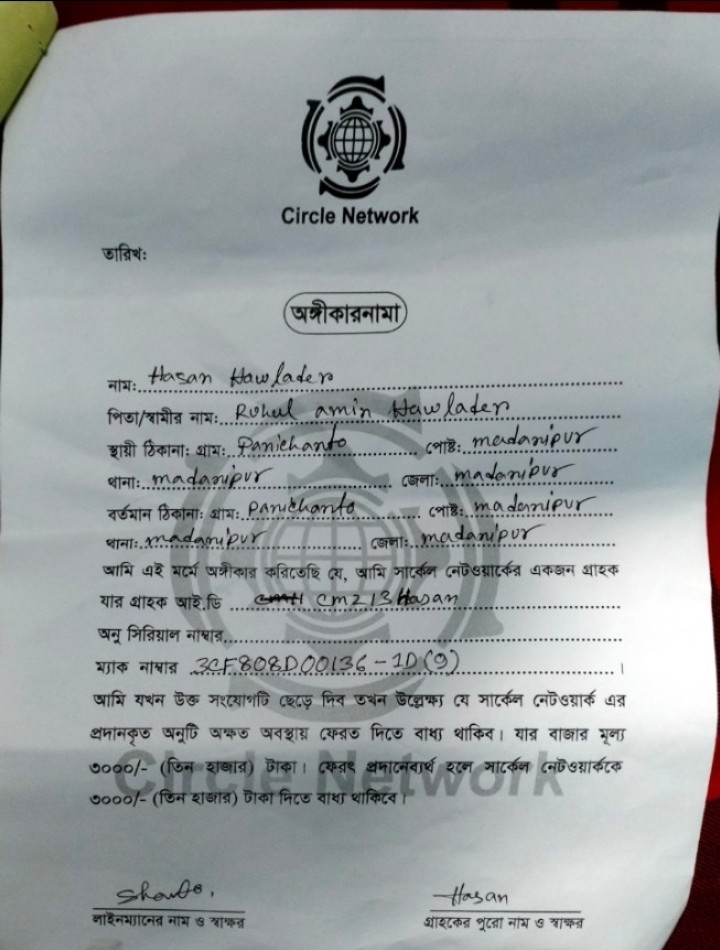 Circle Network
তারিখঃ
অঙ্গীকারনামা
নামঃ Hasan Hawlader
পিতা/স্বামীর নামঃ Ruhul amin Hawlader
স্থায়ী ঠিকানাঃ গ্রামঃ Panichanto পোষ্টঃ madaripur
থানাঃ madaripur জেলাঃ madaripur
বর্তমান ঠিকানাঃ গ্রামঃ Panichanto পোষ্টঃ madaripur
থানাঃ madaripur জেলাঃ madaripur
আমি এই মর্মে অঙ্গীকার করিতেছি যে, আমি সার্কেল নেটওয়ার্কের একজন গ্রাহক
যার গ্রাহক আই.ডি cm213Hasan
অনু সিরিয়াল নাম্বার
ম্যাক নাম্বার 3CF808D00136-1D(9) ।
আমি যখন উক্ত সংযোগটি ছেড়ে দিব তখন উল্লেক্ষ্য যে সার্কেল নেটওয়ার্ক এর
প্রদানকৃত অনুটি অক্ষত অবস্থায় ফেরত দিতে বাধ্য থাকিব। যার বাজার মূল্য
৩০০০/- (তিন হাজার) টাকা। ফেরৎ প্রদানেব্যর্থ হলে সার্কেল নেটওয়ার্ককে
৩০০০/- (তিন হাজার) টাকা দিতে বাধ্য থাকিবে।
Circle Network
Hasan
লাইনম্যানের নাম ও স্বাক্ষর গ্রাহকের পুরো নাম ও স্বাক্ষর